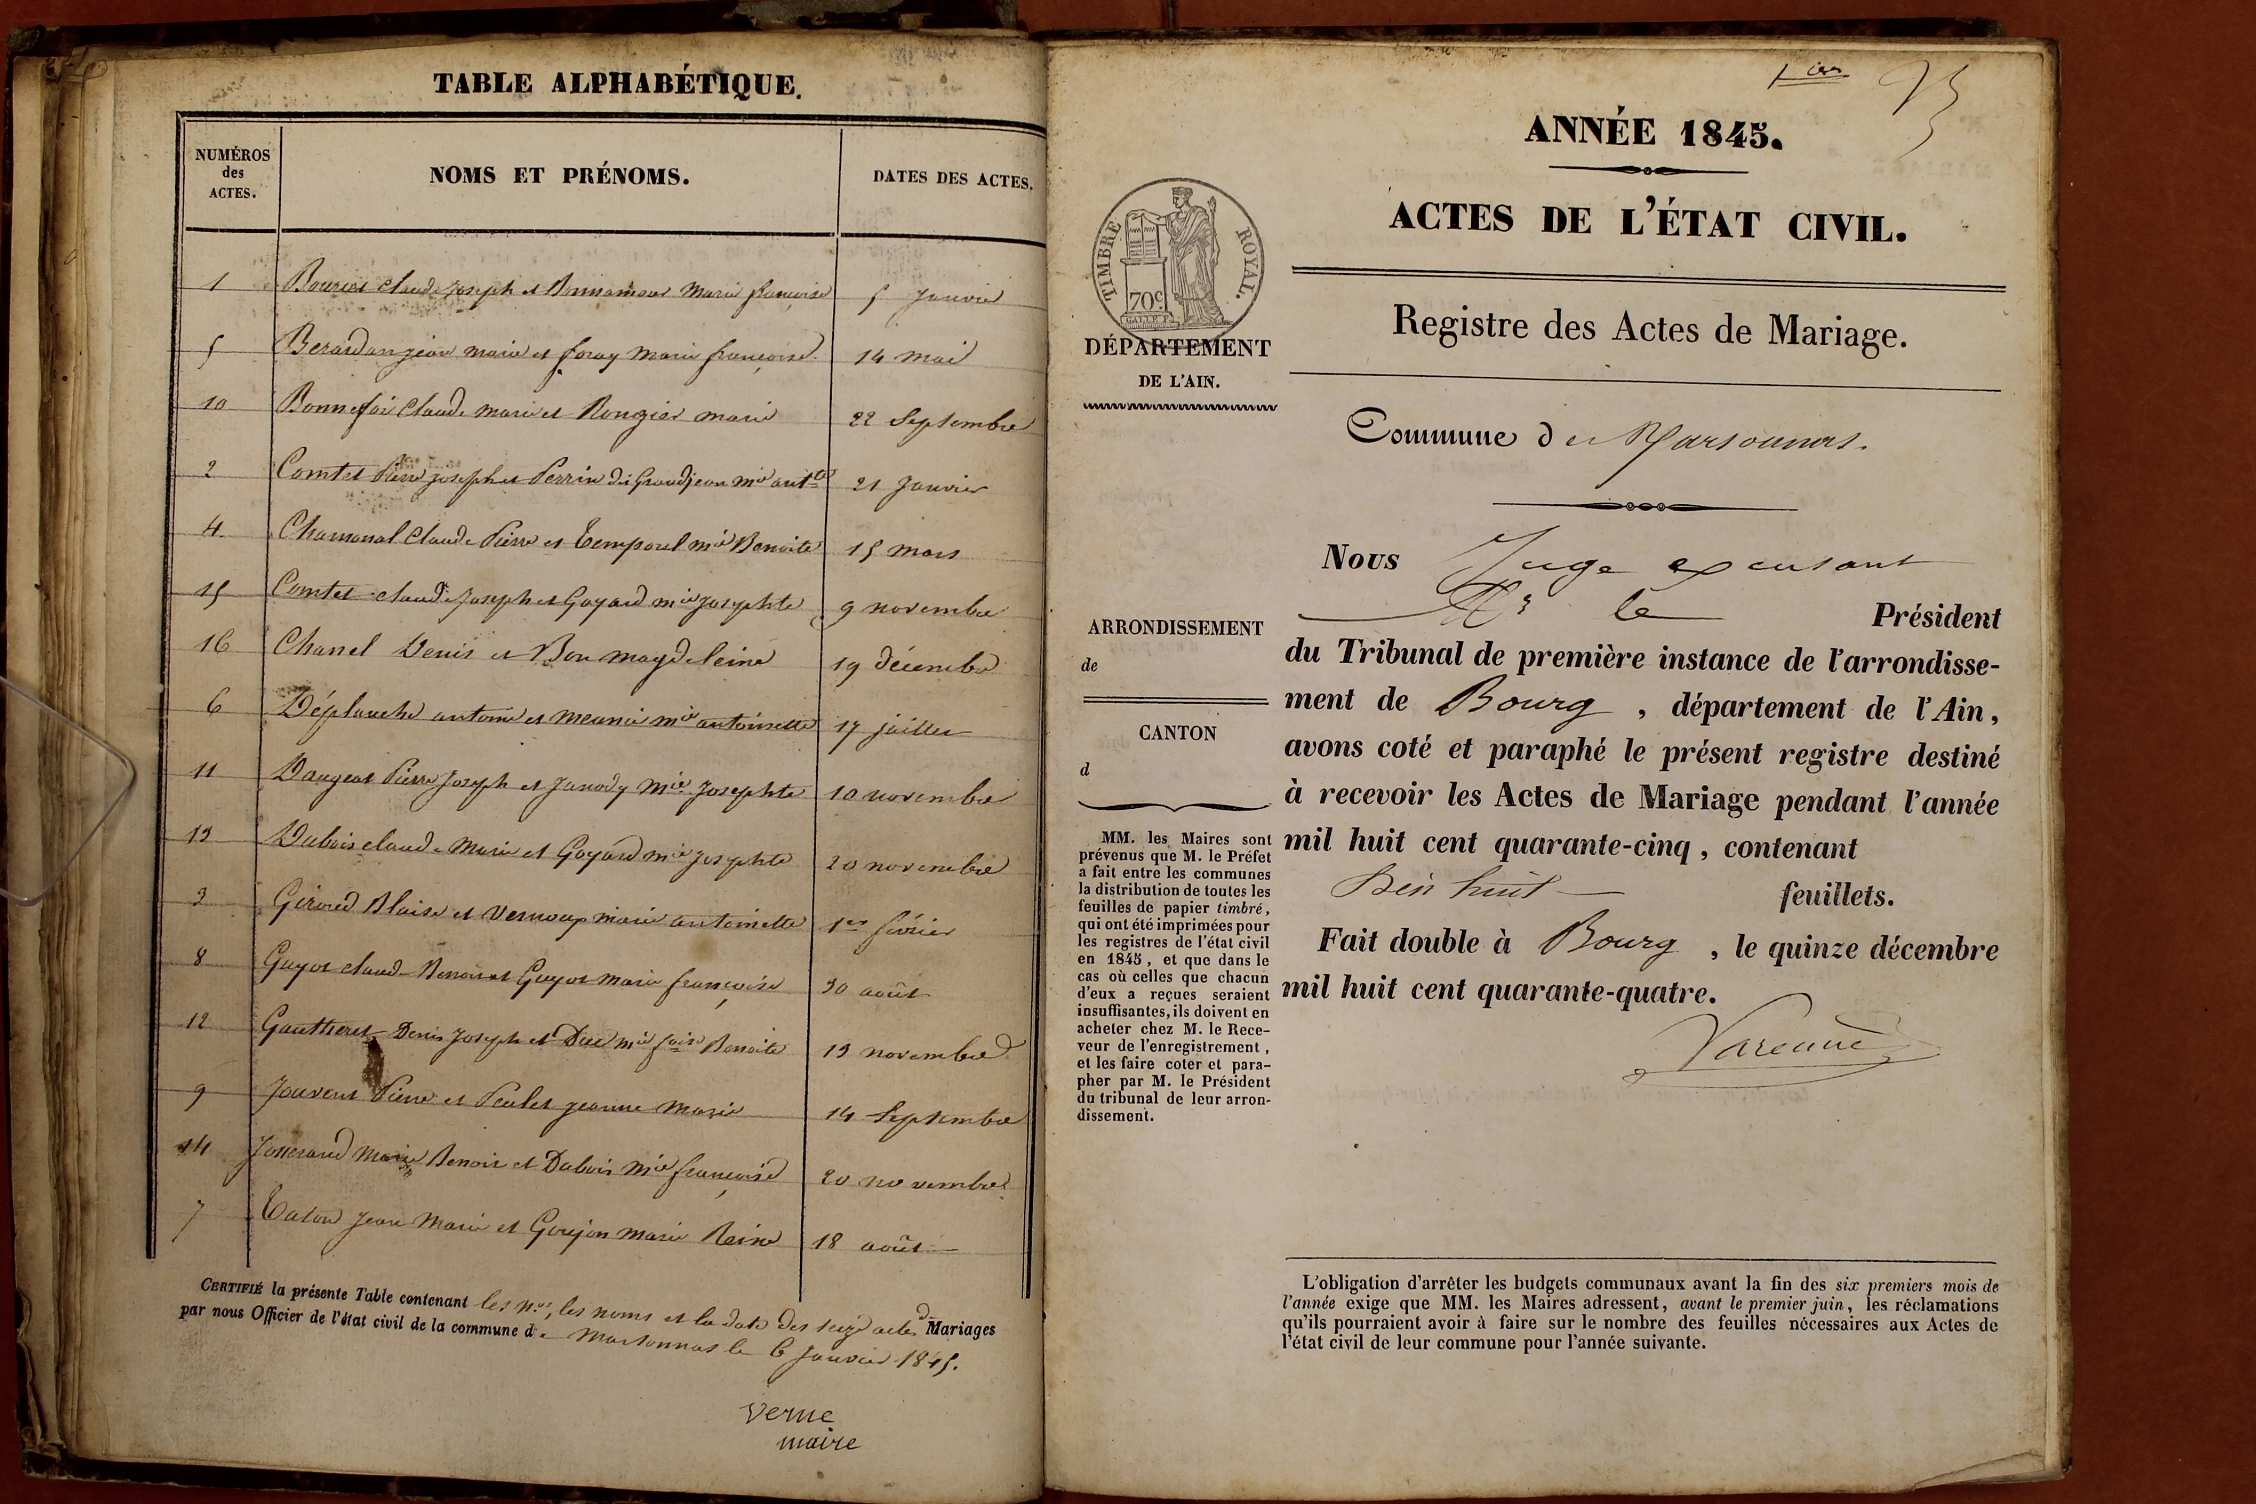 TABLE ALPHABÉTIQUE.
NUMÉROS
des
ACTES.
NOMS ET PRÉNOMS.
DATES DES ACTES.
1 Claude Joseph et Bonnamour Marie françoise 5 Janvier
5 jean marie et foray Marie françoise 14 mai
10 Bonnefoi Claude Marie et Rongier marie 22 Septembre
2 Comtet Pierre joseph et Perrin dit Grandjean mie antte 21 Janvier
4 Chamonal Claude Pierre et Temporel mie Benoite 15 mars
15 Comtet Claude Joseph et Goyard mie Josephte 9 novembre
16 Chanel Denis et Bon magdeleine 19 décembre
6 Déplanche antoine et Meunié mie antoinette 17 juillet
11 Dangeat Pierre Joseph et Janody mie Josephte 10 novembre
13 Dubois claude Marie et Goyard mie Josephte 20 novembre
3 Giroud Blaise et Vernoux marie antoinette 1er févrièr
8 Guyot claude Benoit et Guyot marie françoise 30 août
12 Gauthieret Denis Joseph et mie foise Benoite 13 novembre
9 Jouvent Pierre et Peulet jeanne Marie 14 Septembre
14 Josserand Marie Benoit et Dubois mie françoise 20 novembre
7 Caton Jean Marie et Goujon marie Reine 18 août
CERTIFIÉ la présente Table contenant les nos, les noms et la date des seize actes de Mariages
par nous Officier de l'état civil de la commune de Marsonnas le 6 Janvier 1845.
Verne
maire
1er
ANNÉE 1845.
ACTES DE L'ÉTAT CIVIL.
TIMBRE ROYAL.
70c
Registre des Actes de Mariage.
DÉPARTEMENT
DE L'AIN.
Commune de Marsonnas.
Nous Juge excusant
Mr le Président
du Tribunal de première instance de l'arrondisse-
ment de Bourg, département de l'Ain,
avons coté et paraphé le présent registre destiné
à recevoir les Actes de Mariage pendant l'année
mil huit cent quarante-cinq, contenant
huit feuillets.
Fait double à Bourg, le quinze décembre
mil huit cent quarante-quatre.
Varenne
ARRONDISSEMENT
de
CANTON
d
MM. les Maires sont
prévenus que M. le Préfet
a fait entre les communes
la distribution de toutes les
feuilles de papier timbré,
qui ont été imprimées pour
les registres de l'état civil
en 1845, et que dans le
cas où celles que chacun
d'eux a reçues seraient
insuffisantes, ils doivent en
acheter chez M. le Rece-
veur de l'enregistrement,
et les faire coter et para-
pher par M. le Président
du tribunal de leur arron-
dissement.
L'obligation d'arrêter les budgets communaux avant la fin des six premiers mois de
l'année exige que MM. les Maires adressent, avant le premier juin, les réclamations
qu'ils pourraient avoir à faire sur le nombre des feuilles nécessaires aux Actes de
l'état civil de leur commune pour l'année suivante.